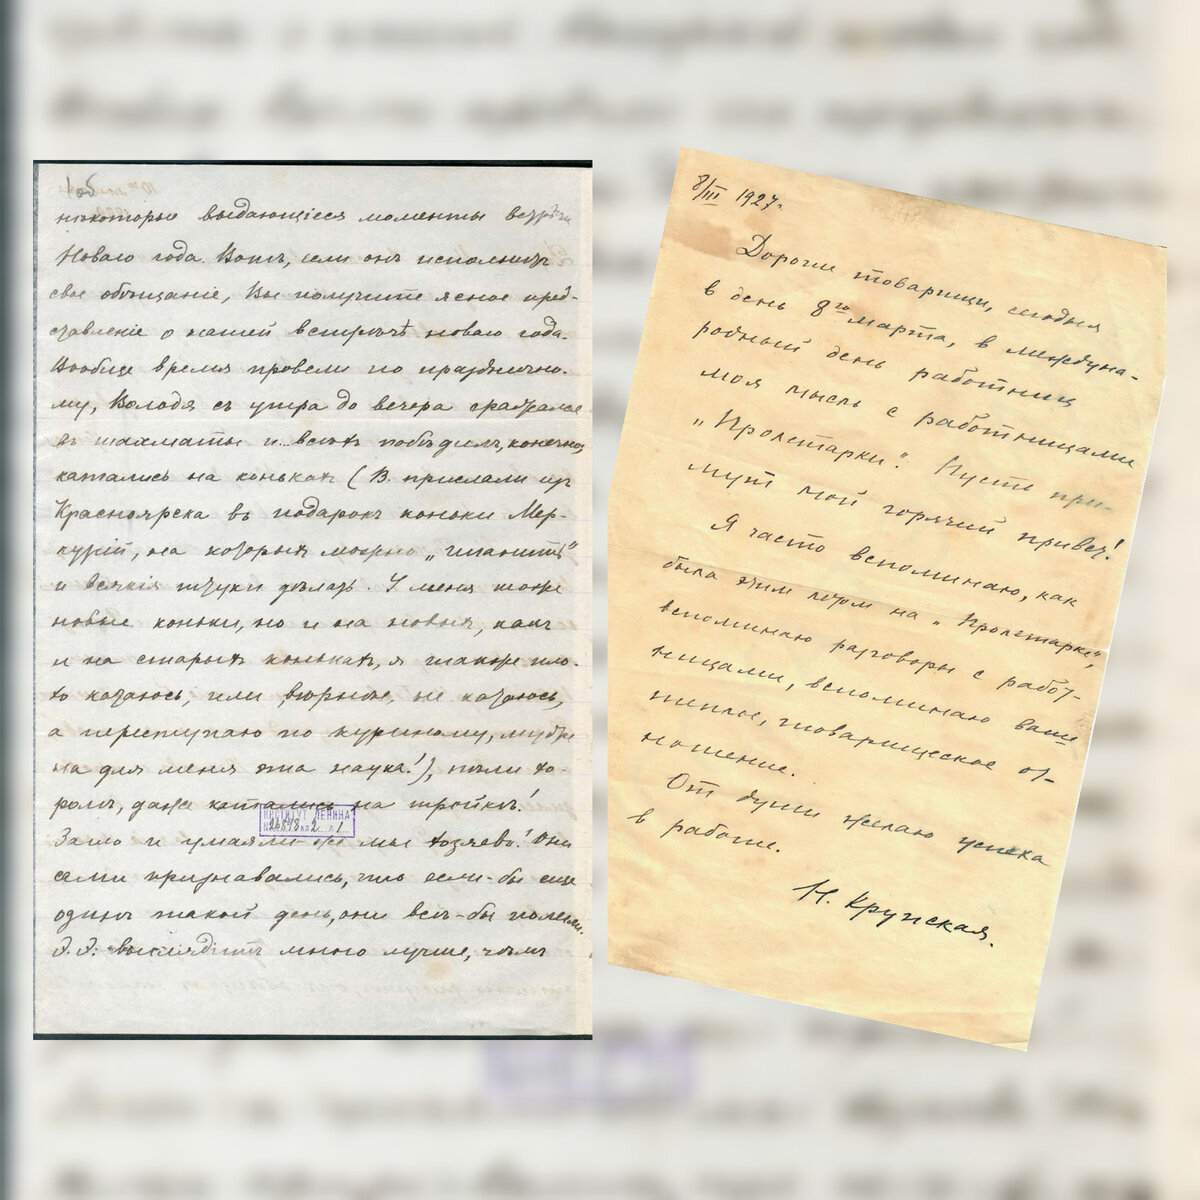 1об
некоторые выдающіеся моменты встрѣчи
Новаго года. Вотъ, если онъ исполнитъ
свое обѣщаніе, Вы получите ясное пред-
ставленіе о нашей встрѣчѣ новаго года.
Вообще время провели по праздничнo-
му, Володя съ утра до вечера сражался
въ шахматы и.. всѣхъ побѣдилъ, конечно,
катались на конькахъ (В. прислали изъ
Красноярска въ подарокъ коньки Мер-
курій, на которыхъ можно „гигантить"
и всякія штуки дѣлать. У меня тоже
новые коньки, но и на новыхъ, какъ
и на старыхъ конькахъ, я также пло-
хо катаюсь, или вѣрнѣе, не катаюсь,
а переступаю по куриному, мудре
на для меня эта наука!), пѣли хо-
ромъ, даже катались на тройкѣ!
Зато и умаяли же мы хозяевъ! Они
сами признавались, что если-бы еще
одинъ такой день, они всѣ-бы полегли.
Э.Э. выглядитъ много лучше, чѣмъ
ИНСТИТУТ ЛЕНИНА
8/III 1927г.
Дорогие товарищи, сегодня
в день 8го марта, в междуна-
родный день работниц
моя мысль с работницами
„Пролетарки". Пусть при-
мут мой горячий привет!
Я часто вспоминаю, как
была этим летом на „Пролетарке",
вспоминаю разговоры с работ-
ницами, вспоминаю ваше
теплое, товарищеское от-
ношение.
От души желаю успеха
в работе.
Н. Крупская.